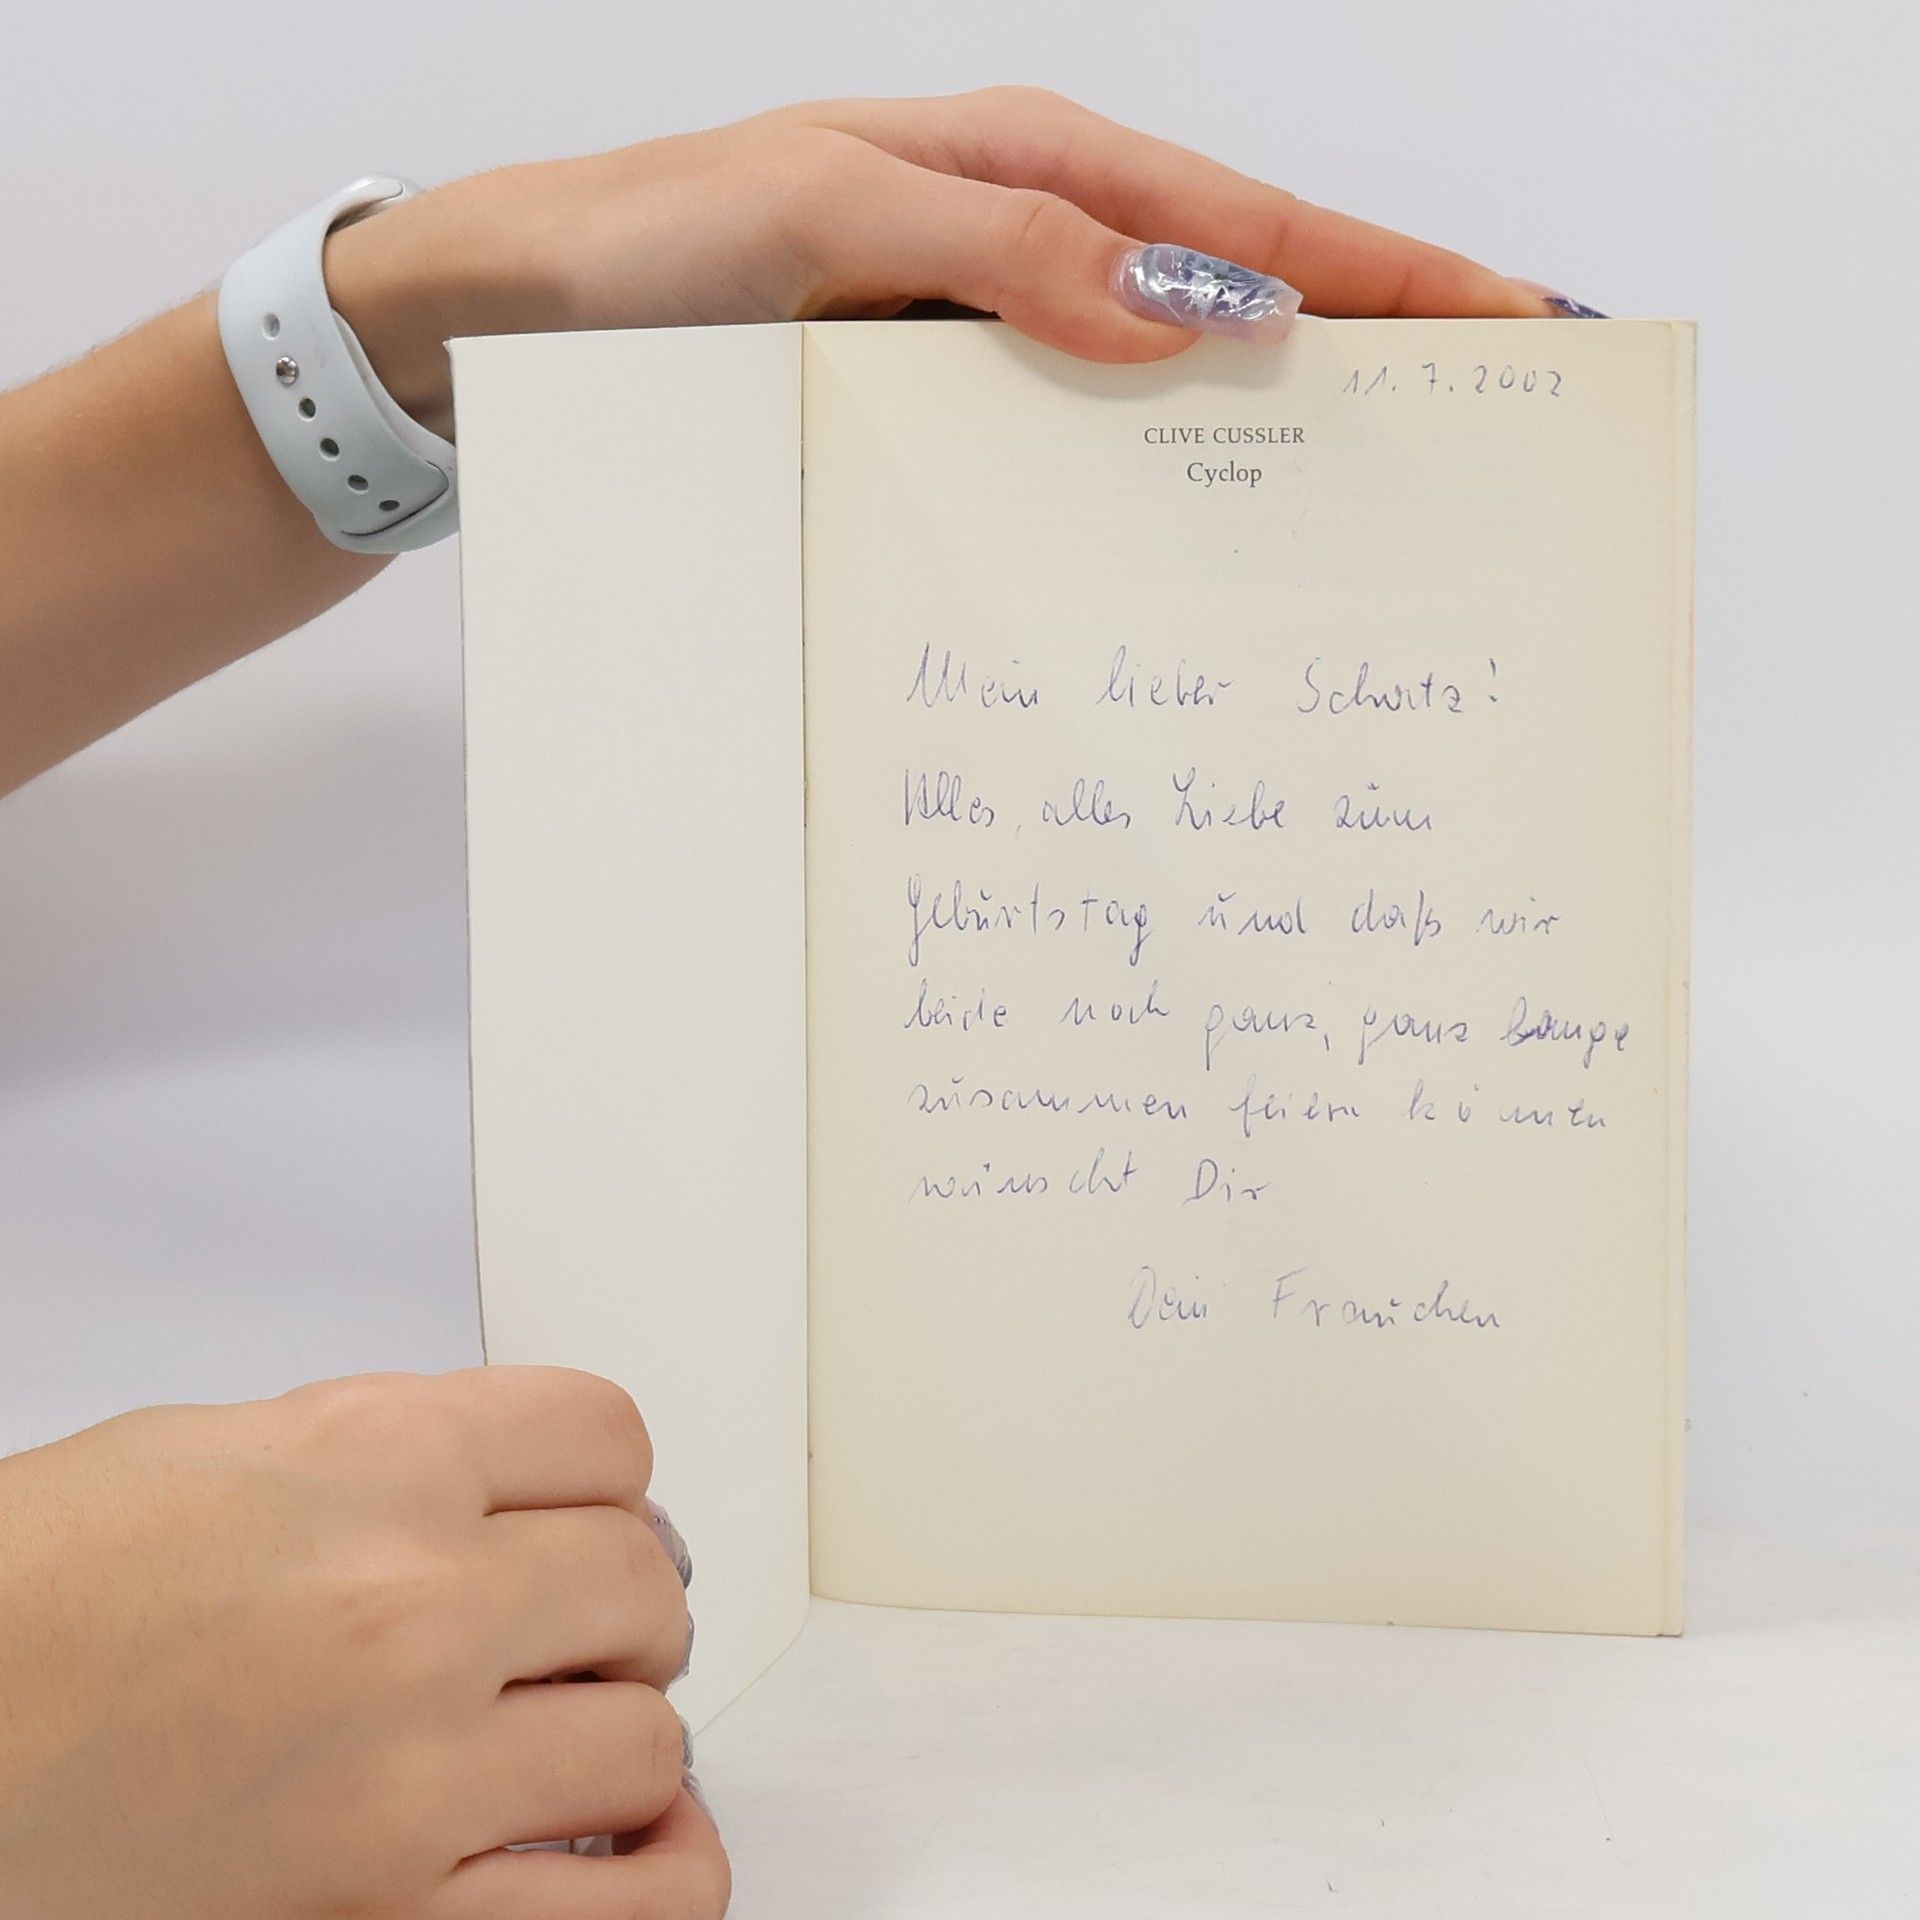 11.7.2002
CLIVE CUSSLER
Cyclop
Mein lieber Schatz!
Alles, alles Liebe zum
Geburtstag und daß wir
beide noch ganz, ganz lange
zusammen feiern können
wünscht Dir
Dein Frauchen